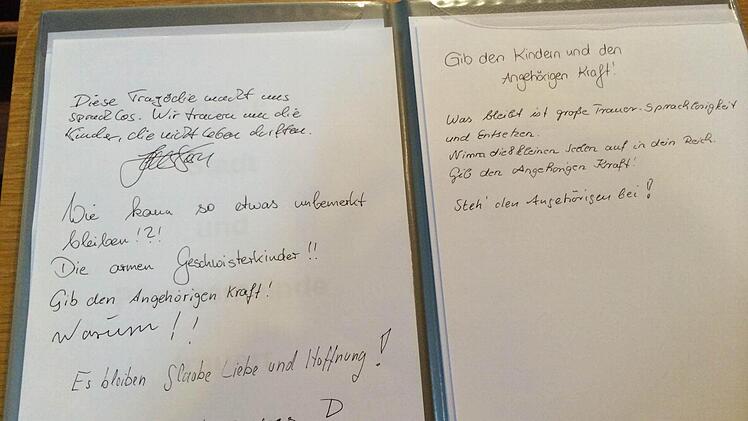 Diese Tragödie macht uns
sprachlos. Wir trauern um die
Kinder, die nicht leben durften.
Wie kann so etwas unbemerkt
bleiben!?!
Die armen Geschwisterkinder!!
Gib den Angehörigen Kraft!
Warum!!
Es bleiben Glaube Liebe und Hoffnung!
Gib den Kindern und den
Angehörigen Kraft!
Was bleibt ist große Trauer. Sprachlosigkeit
und Entsetzen.
Nimm die kleinen Seelen auf in dein Reich.
Gib den Angehörigen Kraft!
Steh' den Angehörigen bei!